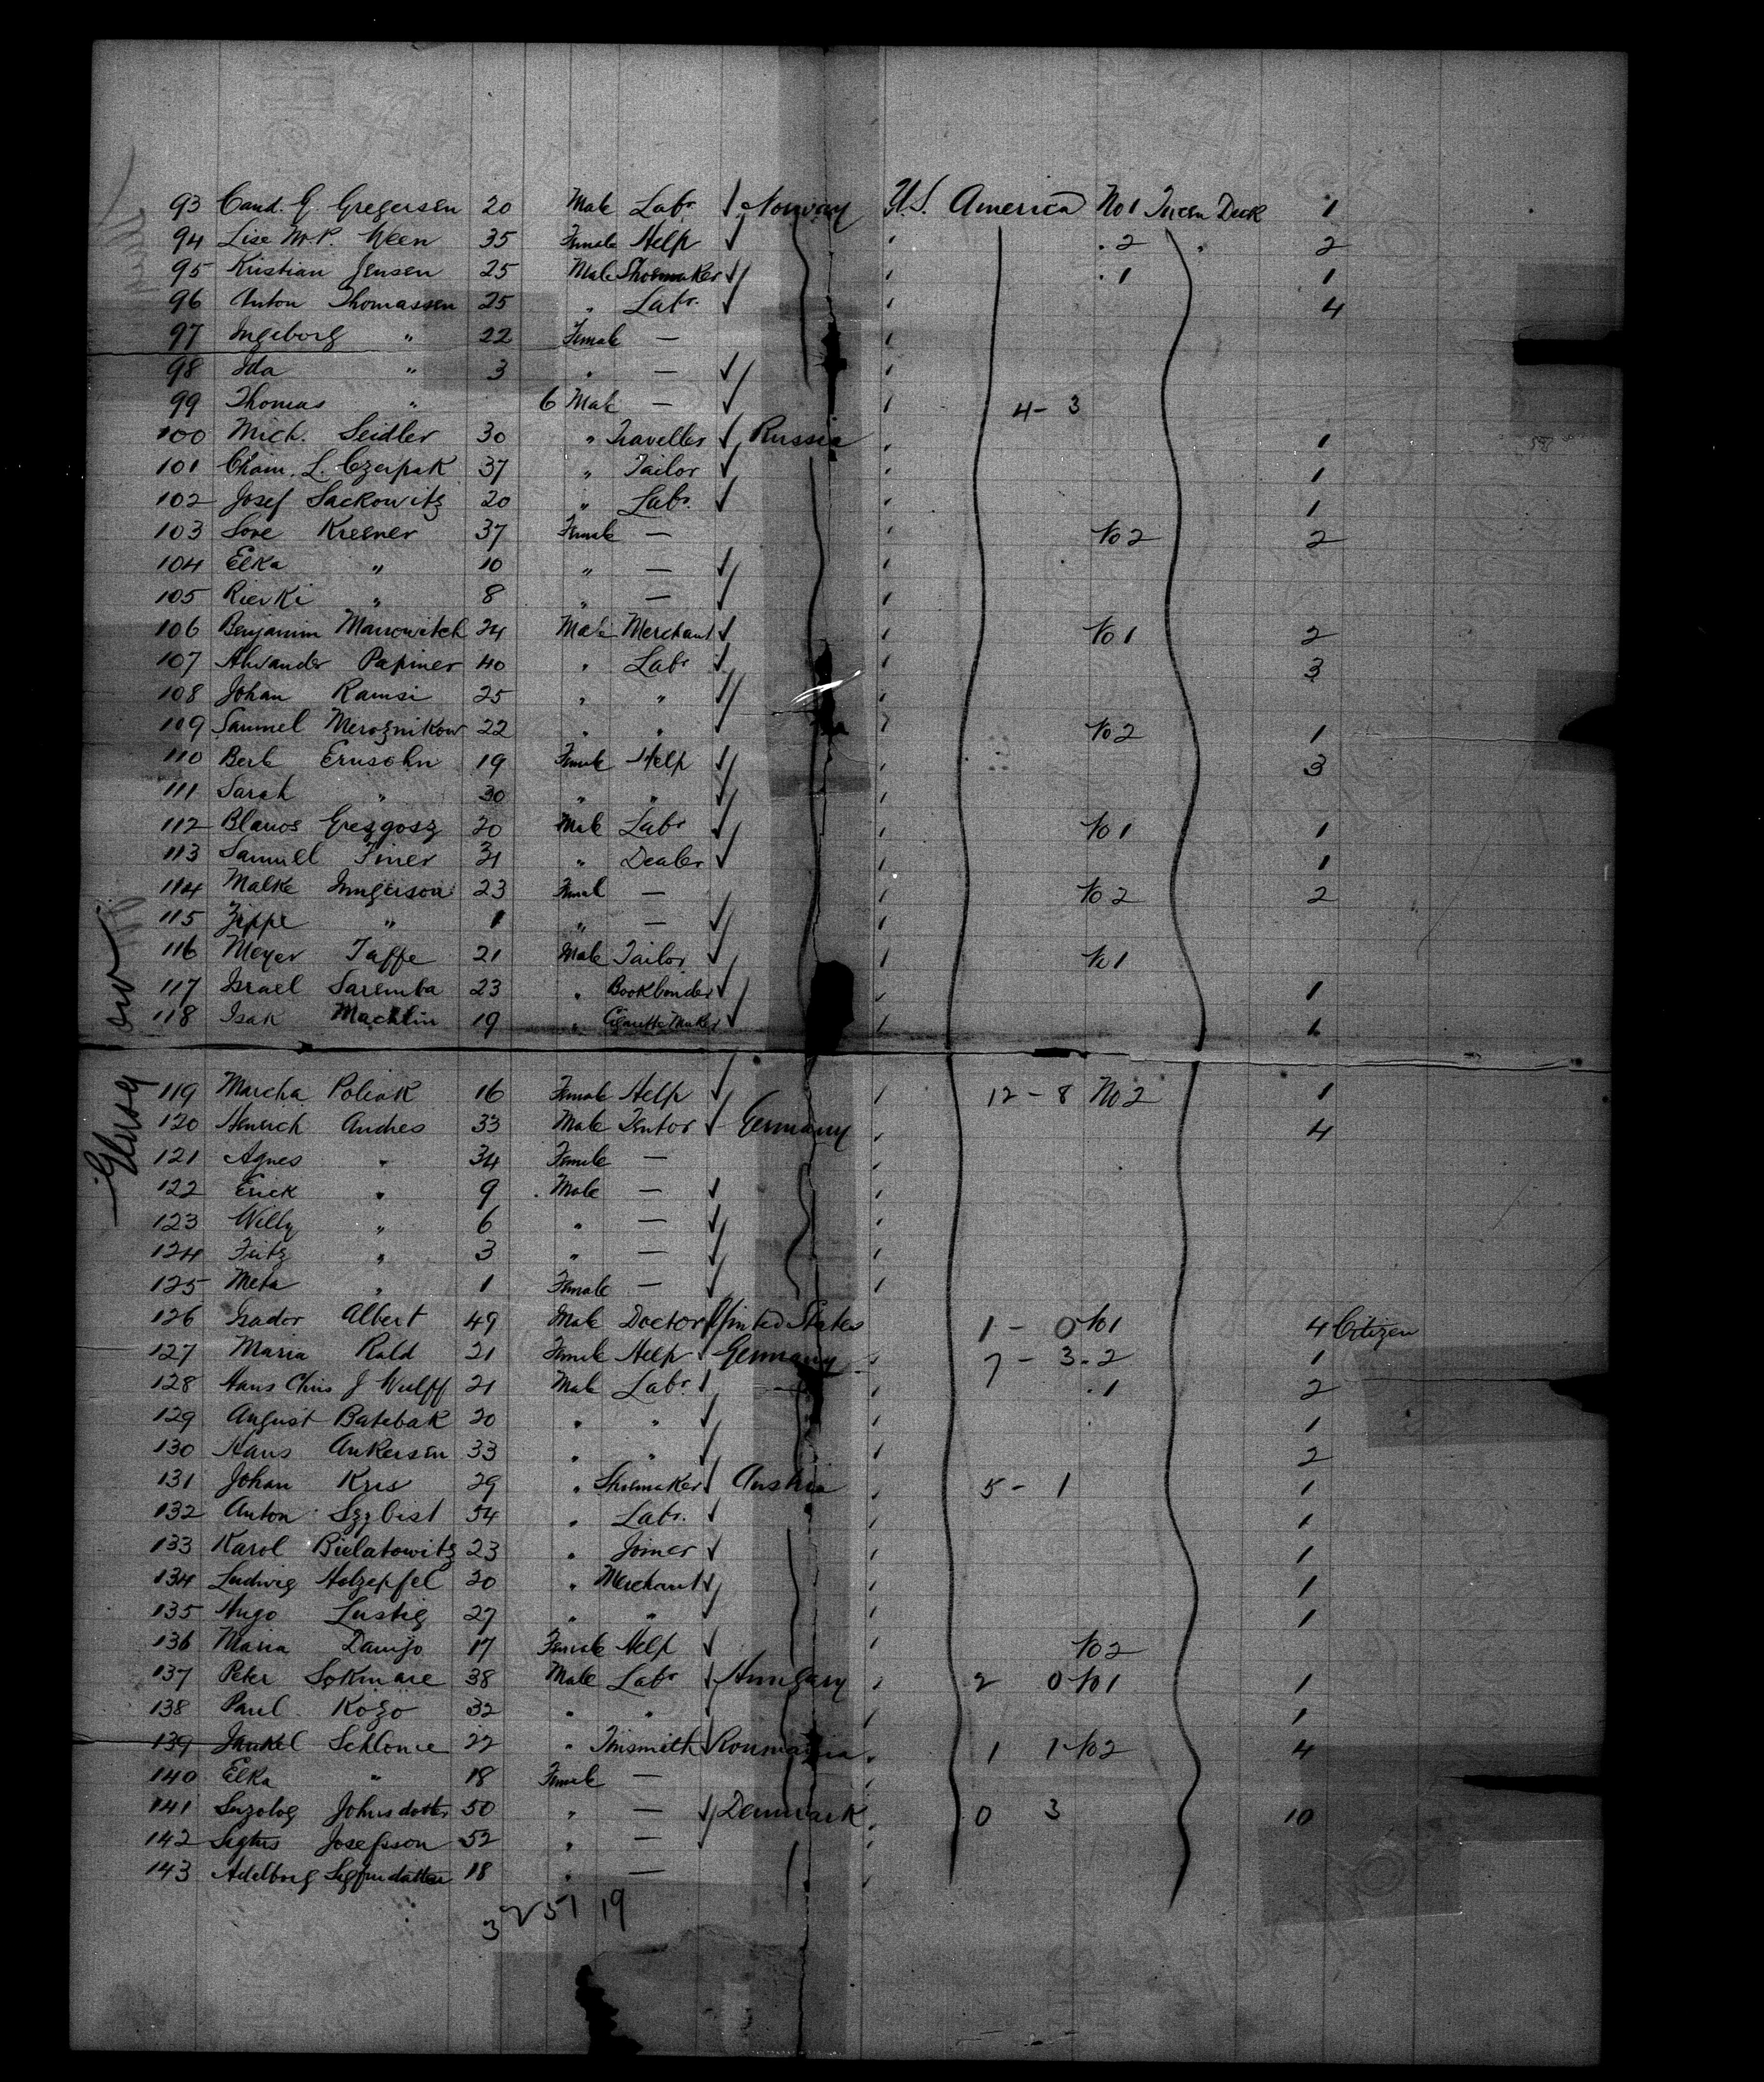 93 Cand. G. Gregersen 20 Male Labr. Norway U.S. America No 1 Tween Deck 1
94 Lise M.P. Ween 35 Female Help " . 2 " 2
95 Kristian Jensen 25 Male Shoemaker " . 1 1
96 Anton Thomassen 25 " Labr. " 4
97 Ingeborg " 22 Female — "
98 Ida " 3 " — "
99 Thomas " 6 Male — " 4 - 3
100 Mich. Seidler 30 " Traveller Russia " 1
101 Chaim. L. Czerpak 37 " Tailor " 1
102 Josef Sackowitz 20 " Labr. " 1
103 Sore Kresner 37 Female — " No 2 2
104 Elka " 10 " — "
105 Rievki " 8 " — "
106 Benjamin Manowitch 24 Male Merchant " No 1 2
107 Papiner 40 " Labr " 3
108 Johan Ramsi 25 " " "
109 Samuel Meroznikow 22 " " " No 2 1
110 Berl Ernsohn 19 Female Help " 3
111 Sarah " 30 " " "
112 Blanos Grezgosz 20 Male Labr " No 1 1
113 Samuel Finer 31 " Dealer " 1
114 Malke Inngerson 23 Femal — " No 2 2
115 Zippe " 1 " — "
116 Meyer Taffe 21 Male Tailor " No 1
117 Israel Saremba 23 " Bookbinder " 1
118 Isak Machlin 19 " Cigarette Maker " 1
Glasgow
119 Mascha Poliak 16 Female Help " 12 - 8 No 2 1
120 Henrich Andres 33 Male Germany " 4
121 Agnes " 34 Female — "
122 Erick " 9 Male — "
123 Willy " 6 " — "
124 Fritz " 3 " — "
125 Meta " 1 Female — "
126 Isador Albert 49 Male Doctor United States 1 - 0 No 1 4 Citizen
127 Maria Rald 21 Female Help Germany " 7 - 3 . 2 1
128 Hans Chris J Wulff 21 Male Labr. " . 1 2
129 August Batebak 20 " " " 1
130 Hans Ankersen 33 " " " 2
131 Johan Kris 29 " Shoemaker Austria " 5 - 1 1
132 Anton Szzbist 54 " Labr. " 1
133 Karol Bielatowitz 23 " Joiner " 1
134 Ludwig Holzepfel 20 " Merchant " 1
135 Hugo Lustig 27 " " " 1
136 Maria Danijo 17 Female Help " No 2
137 Peter Sokmare 38 Male Labr Hungary " 2 0 No 1 1
138 Paul Kozo 32 " " " 1
139 Jankel Schlome 22 " Tinsmith Roumania " 1 1 No 2 4
140 Elka " 18 Female — "
141 Johnsdotter 50 " — Denmark " 0 3 10
142 Josefsson 52 " — "
143 Adelborg 18 " — "
3 2 51 19